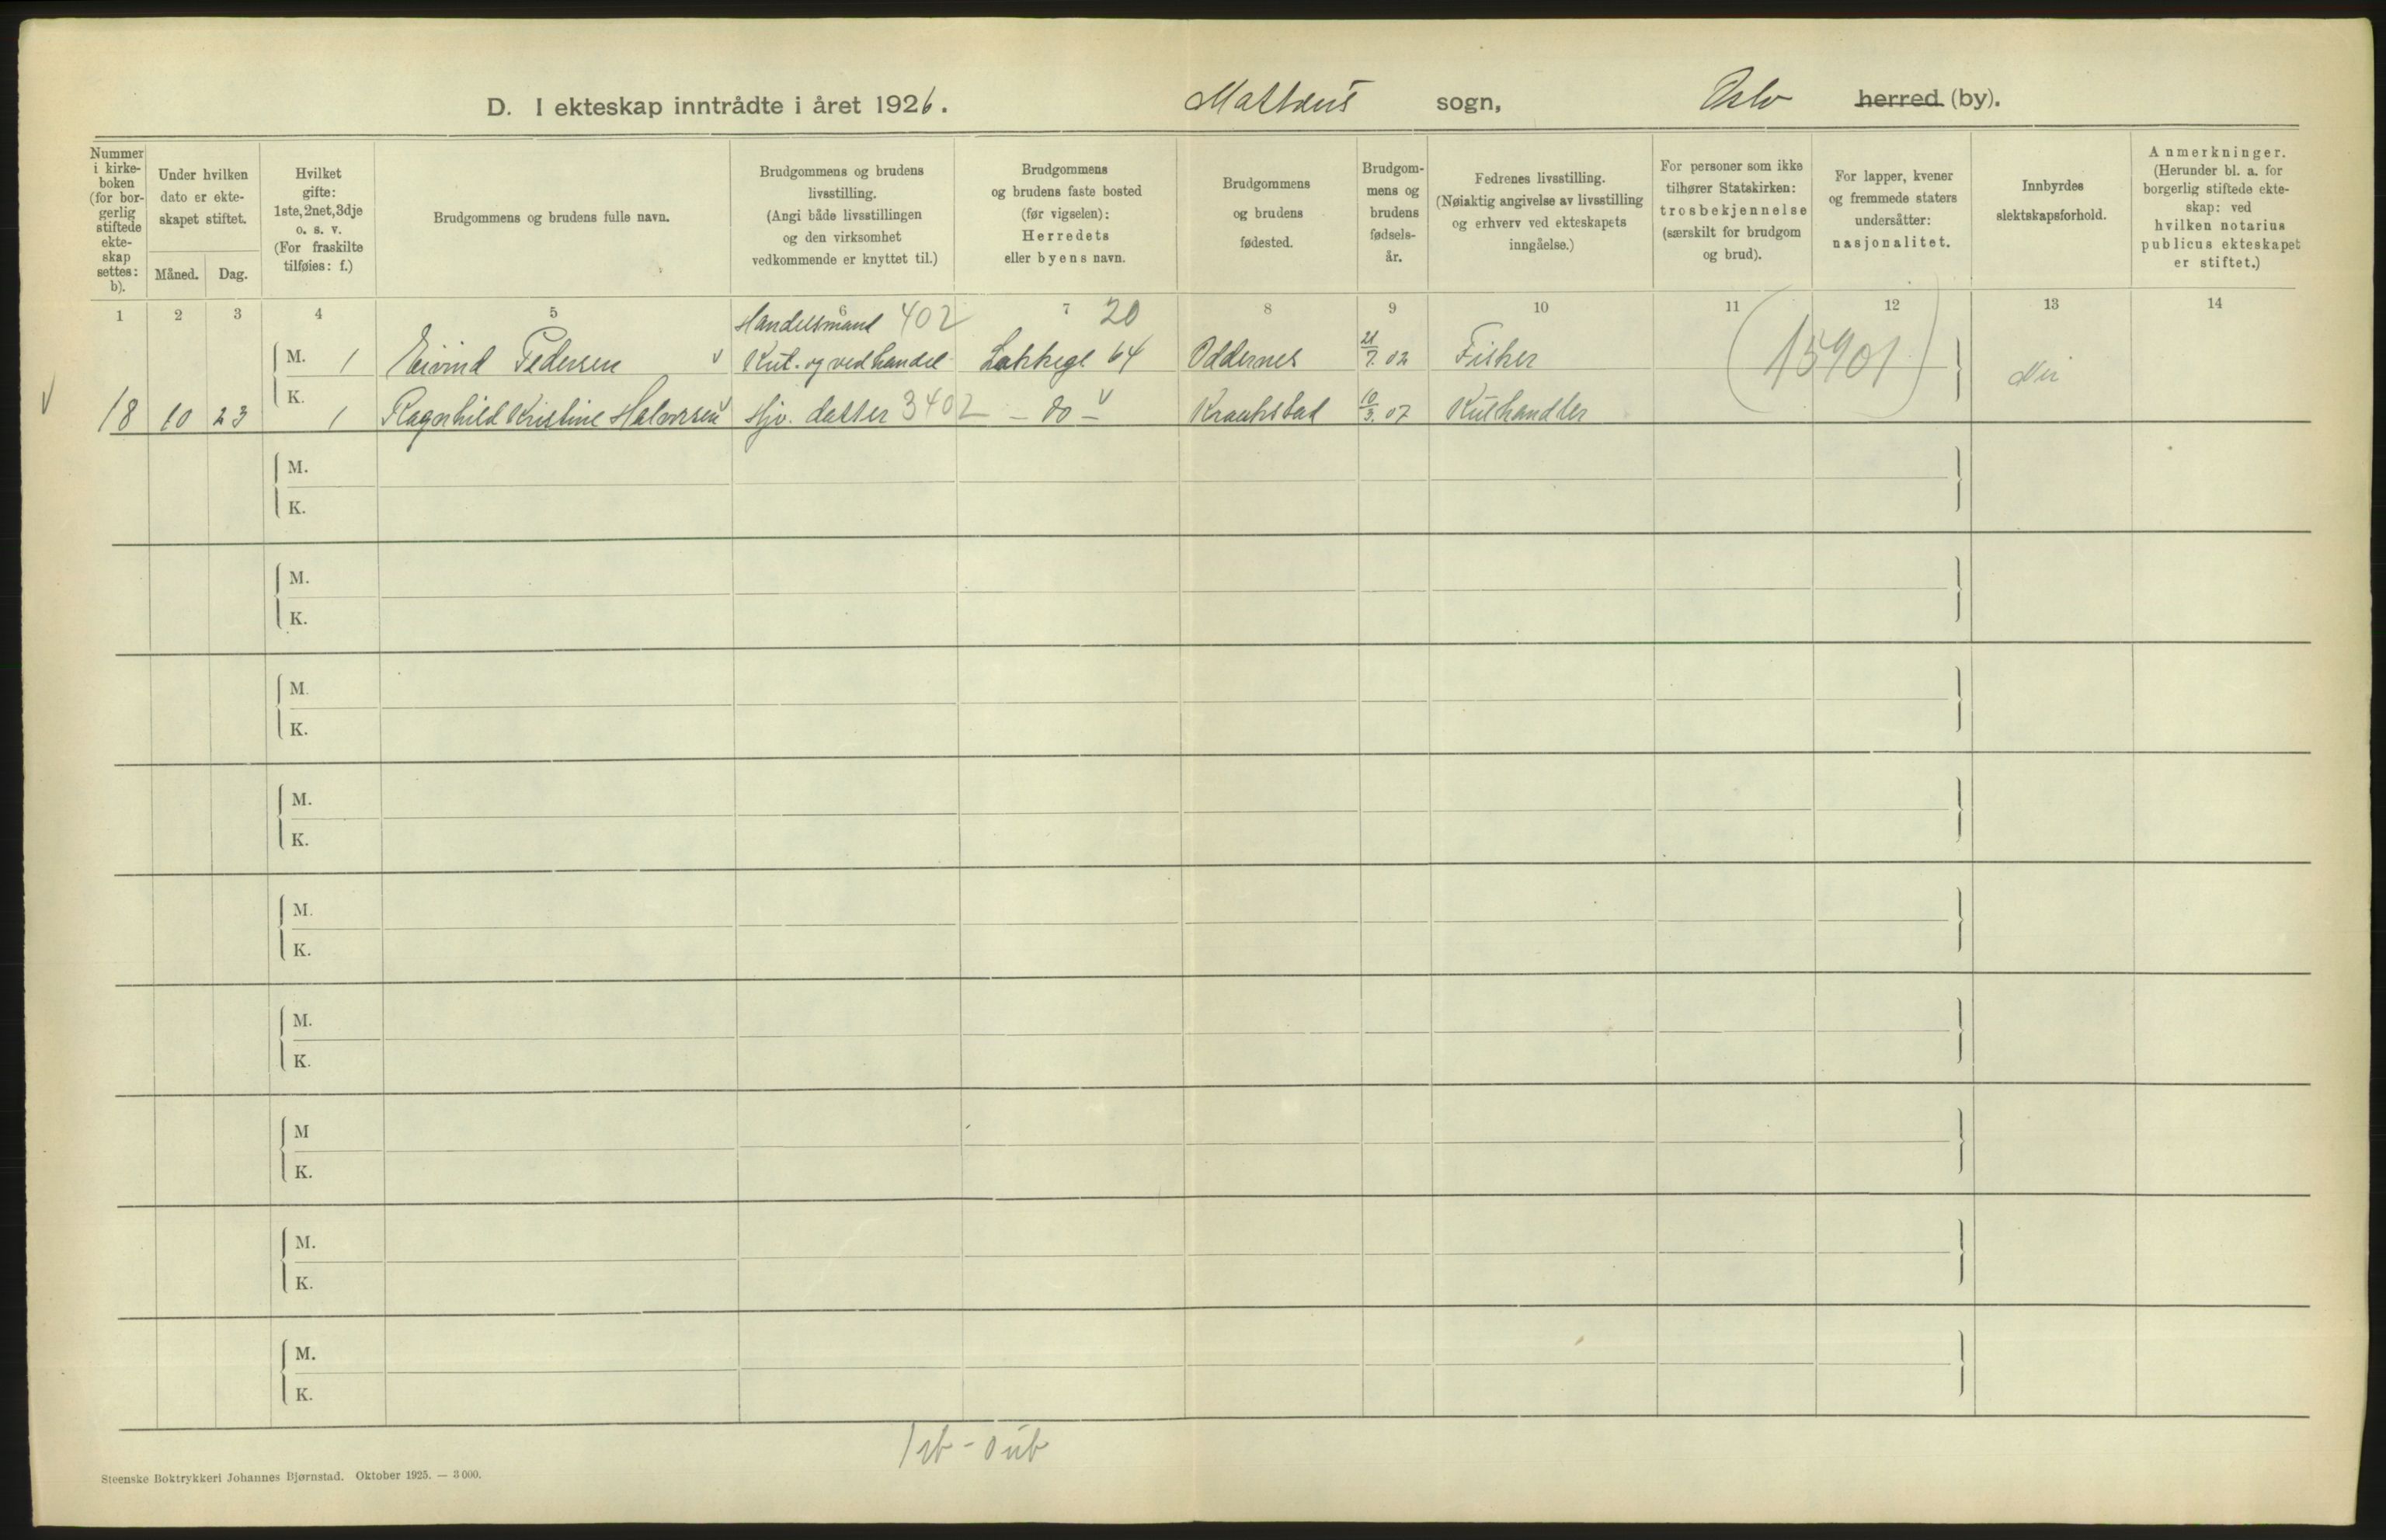 D. I ekteskap inntrådte i året 1926. Matteus sogn, Oslo herred (by).
Nummer
i kirke-
boken
(for bor-
gerlig
stiftede
ekte-
skap
settes:
b).
Under hvilken
dato er ekte-
skapet stiftet.
Måned. Dag.
Hvilket
gifte:
1ste, 2net, 3dje
o. s. v.
(For fraskilte
tilføies: f.)
Brudgommens og brudens fulle navn.
Brudgommens og brudens
livsstilling.
(Angi både livsstillingen
og den virksomhet
vedkommende er knyttet til.)
Brudgommens
og brudens faste bosted
(før vigselen):
Herredets
eller byens navn.
Brudgommens
og brudens
fødested.
Brudgom-
mens og
brudens
fødsels-
år.
Fedrenes livsstilling.
(Nøiaktig angivelse av livsstilling
og erhverv ved ekteskapets
inngåelse.)
For personer som ikke
tilhører Statskirken:
trosbekjennelse
(særskilt for brudgom
og brud).
For lapper, kvener
og fremmede staters
undersåtter:
nasjonalitet.
Innbyrdes
slektskapsforhold.
Anmerkninger.
(Herunder bl. a. for
borgerlig stiftede ekte-
skap: ved
hvilken notarius
publicus ekteskapet
er stiftet.)
1 2 3 4 5 6 7 8 9 10 11 12 13 14
Handelsmand 402 20
M. 1 Eivind Pedersen v Kul. og vedhandel Lakkegt 64 Oddernes 21/7. 02 Fisker (15901) Nei
v 18 10 23 K. 1 Ragnhild Kristine Halvorsen v Hjv. datter 3402 - do - v Kraakstad 10/3. 07 Kulhandler
M.
K.
M.
K.
M.
K.
M.
K.
M.
K.
M.
K.
M
K.
M.
K.
M.
K.
Steenske Boktrykkeri Johannes Bjørnstad. Oktober 1925. — 3000.